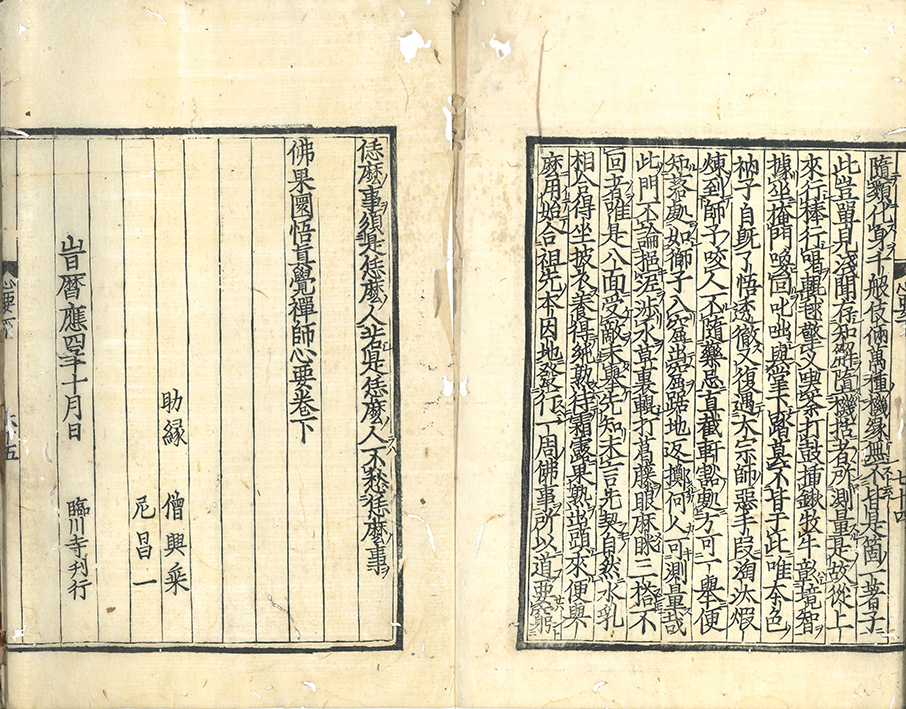 隨類化身千般伎倆萬種機縁無不皆是箇一著子
此豈單見淺聞存知解隨機括者所測量是故從上
來行棒行喝輥毬擎叉輿茶打鼓插鍬牧牛彰境智
據坐掩門喚回叱咄與掌下踏莫不甘子此唯本色
衲子自既了悟透徹又復遇大宗師惡手段淘汰煅
煉到師子咬人不隨藥忌直截軒豁動方可一舉便
知落處如獅子入窟出窟踞地返擲何人可測量哉
此門不論拖泥涉水草裏輥打葛藤眼麻眯三搭不
回者唯是八面受敵未舉先知未言先契自然水乳
相合得坐披衣養得純熟待霜露果熟出頭來便與
麼用始合祖先本因地發行一周佛事所以道要窮
恁麼事須是恁麼人若是恁麼人不愁恁麼事
佛果圜悟真覺禪師心要卷下
助縁 僧興乘
尼昌一
旹曆應四年十月日 臨川寺刊行
心要下
七十四